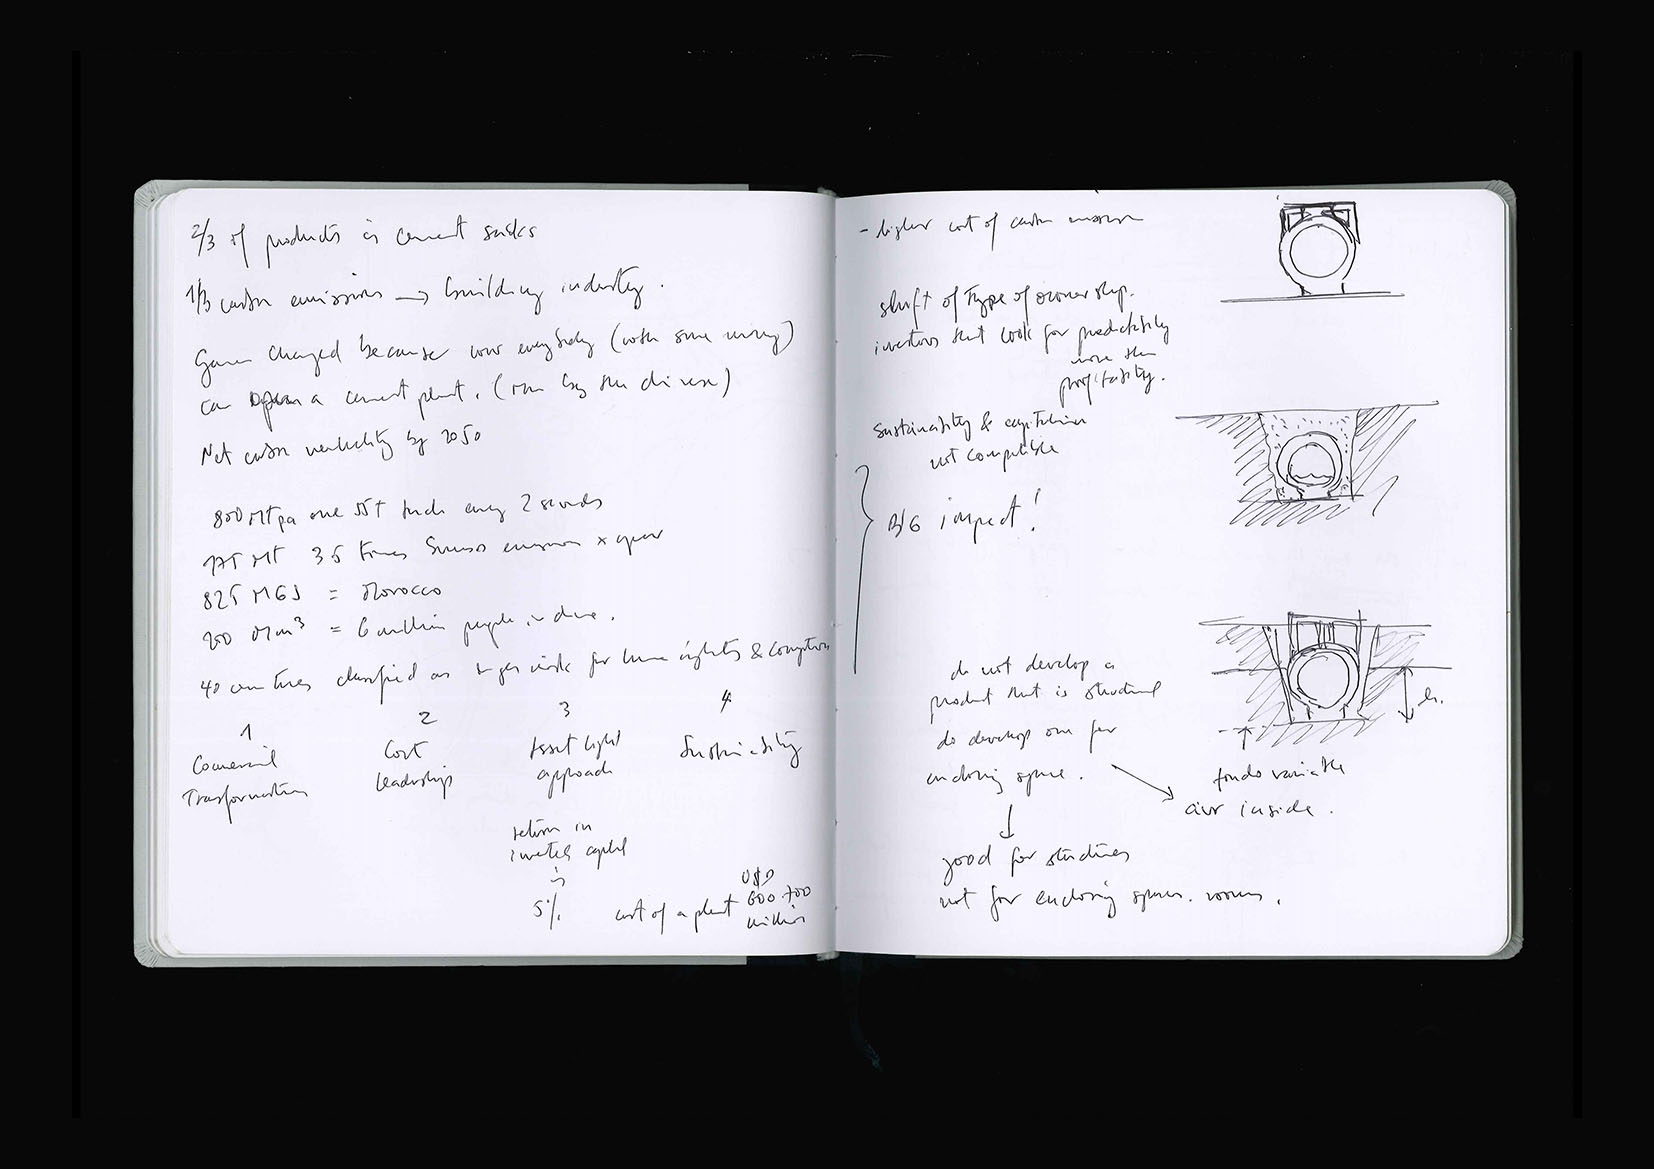 2/3 of products is cement sacks
1/3 carbon emissions → building industry.
Game changed because now everybody (with some money)
can open a cement plant. (run by the chinese)
Net carbon neutrality by 2050
800 Mtpa one 55t truck every 2 seconds
175 Mt 35 times emissions x year
825 MGJ = Morocco
200 Mm³ = 6 million people in
40 countries classified as risk for human rights & corruption
1 2 3 4.
Commercial Cost Asset light Sustainability
Transformation leadership approach
return in
invested capital
is
5%.
cost of a plant USD
600.700
million
- higher cost of carbon
shift of Type of ownership.
investors that look for predictability
more than
profitability.
Sustainability & capitalism
not compatible
BIG impact!
do not develop a
product that is structural
do develop one for
enclosing space.
air inside.
good for structures
not for enclosing spaces. rooms.
h.
fondo variable